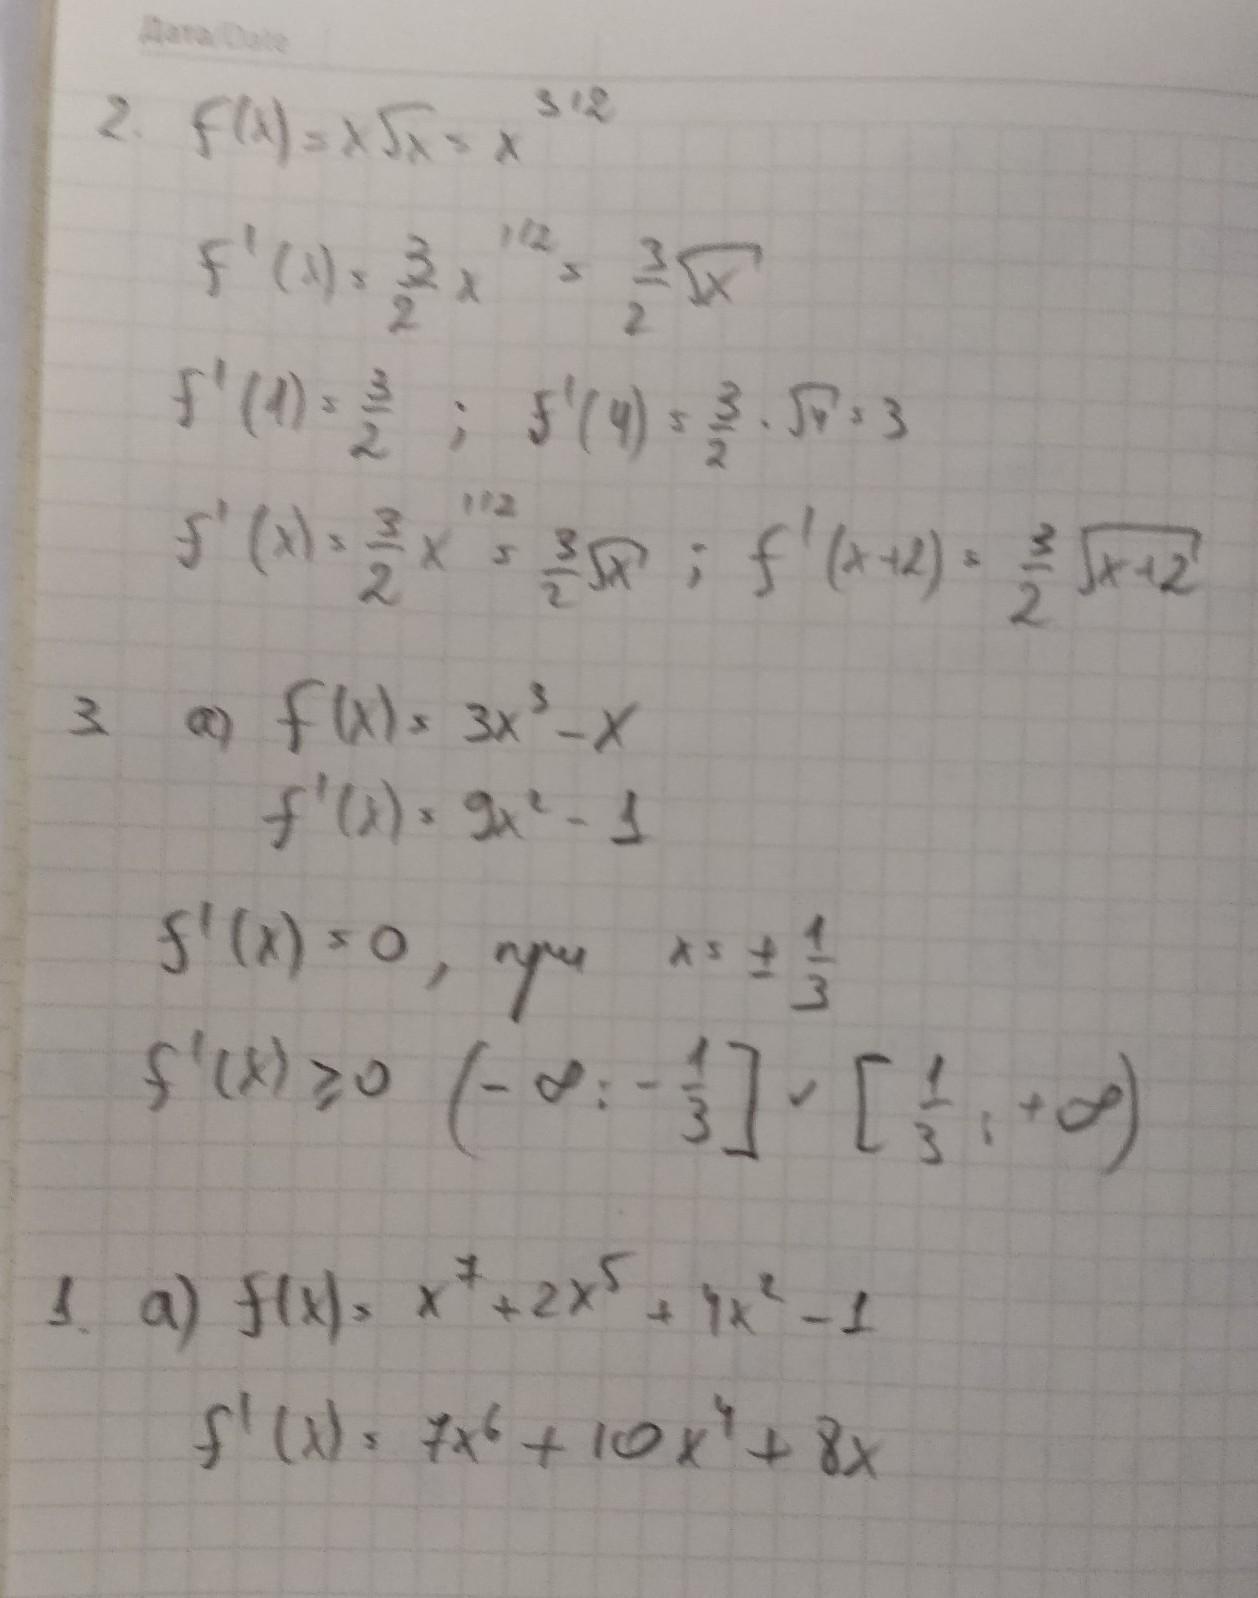 Дата/Date
2. f(x) = x√x = x^3/2
f'(x) = 3/2 x^1/2 = 3/2 √x
f'(1) = 3/2 ; f'(4) = 3/2 · √4 = 3
f'(x) = 3/2 x^1/2 = 3/2 √x ; f'(x+2) = 3/2 √x+2
3. а) f(x) = 3x³ - x
f'(x) = 9x² - 1
f'(x) = 0, при x = ± 1/3
f'(x) ≥ 0 (-∞; -1/3] ∨ [1/3; +∞)
1. а) f(x) = x⁷ + 2x⁵ + 4x² - 1
f'(x) = 7x⁶ + 10x⁴ + 8x